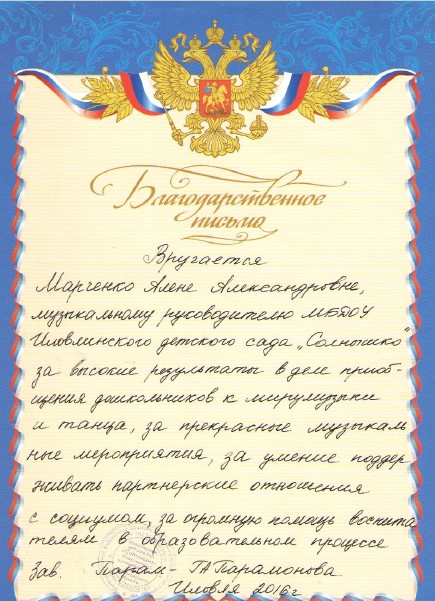 Благодарственное
письмо
Вручается
Марченко Алене Александровне,
музыкальному руководителю МБДОУ
Иловлинского детского сада „Солнышко"
за высокие результаты в деле приоб-
щения дошкольников к миру музыки
и танца, за прекрасные музыкаль
ные мероприятия, за умение поддер-
живать партнерские отношения
с социумом, за огромную помощь воспита
телям в образовательном процессе
Зав. Парам- ГА Парамонова
Иловля 2016 г